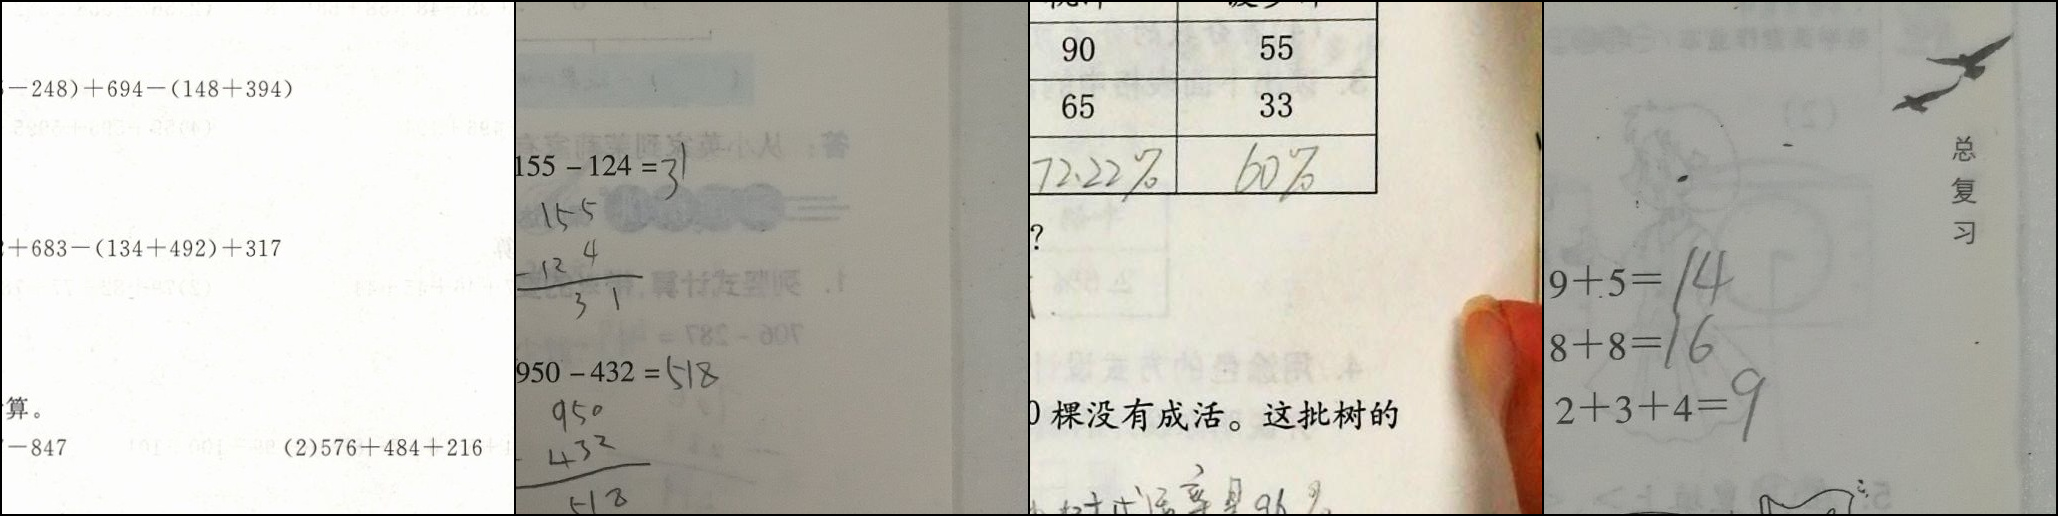 -248)+694-(148+394)
+683-(134+492)+317
算。
-847
(2)576+484+216
155-124=31
155
124
31
950-432=518
950
- 432
518
90 55
65 33
72.22% 60%
?
棵没有成活。这批树的
率是96%
总复习
9+5=14
8+8=16
2+3+4=9